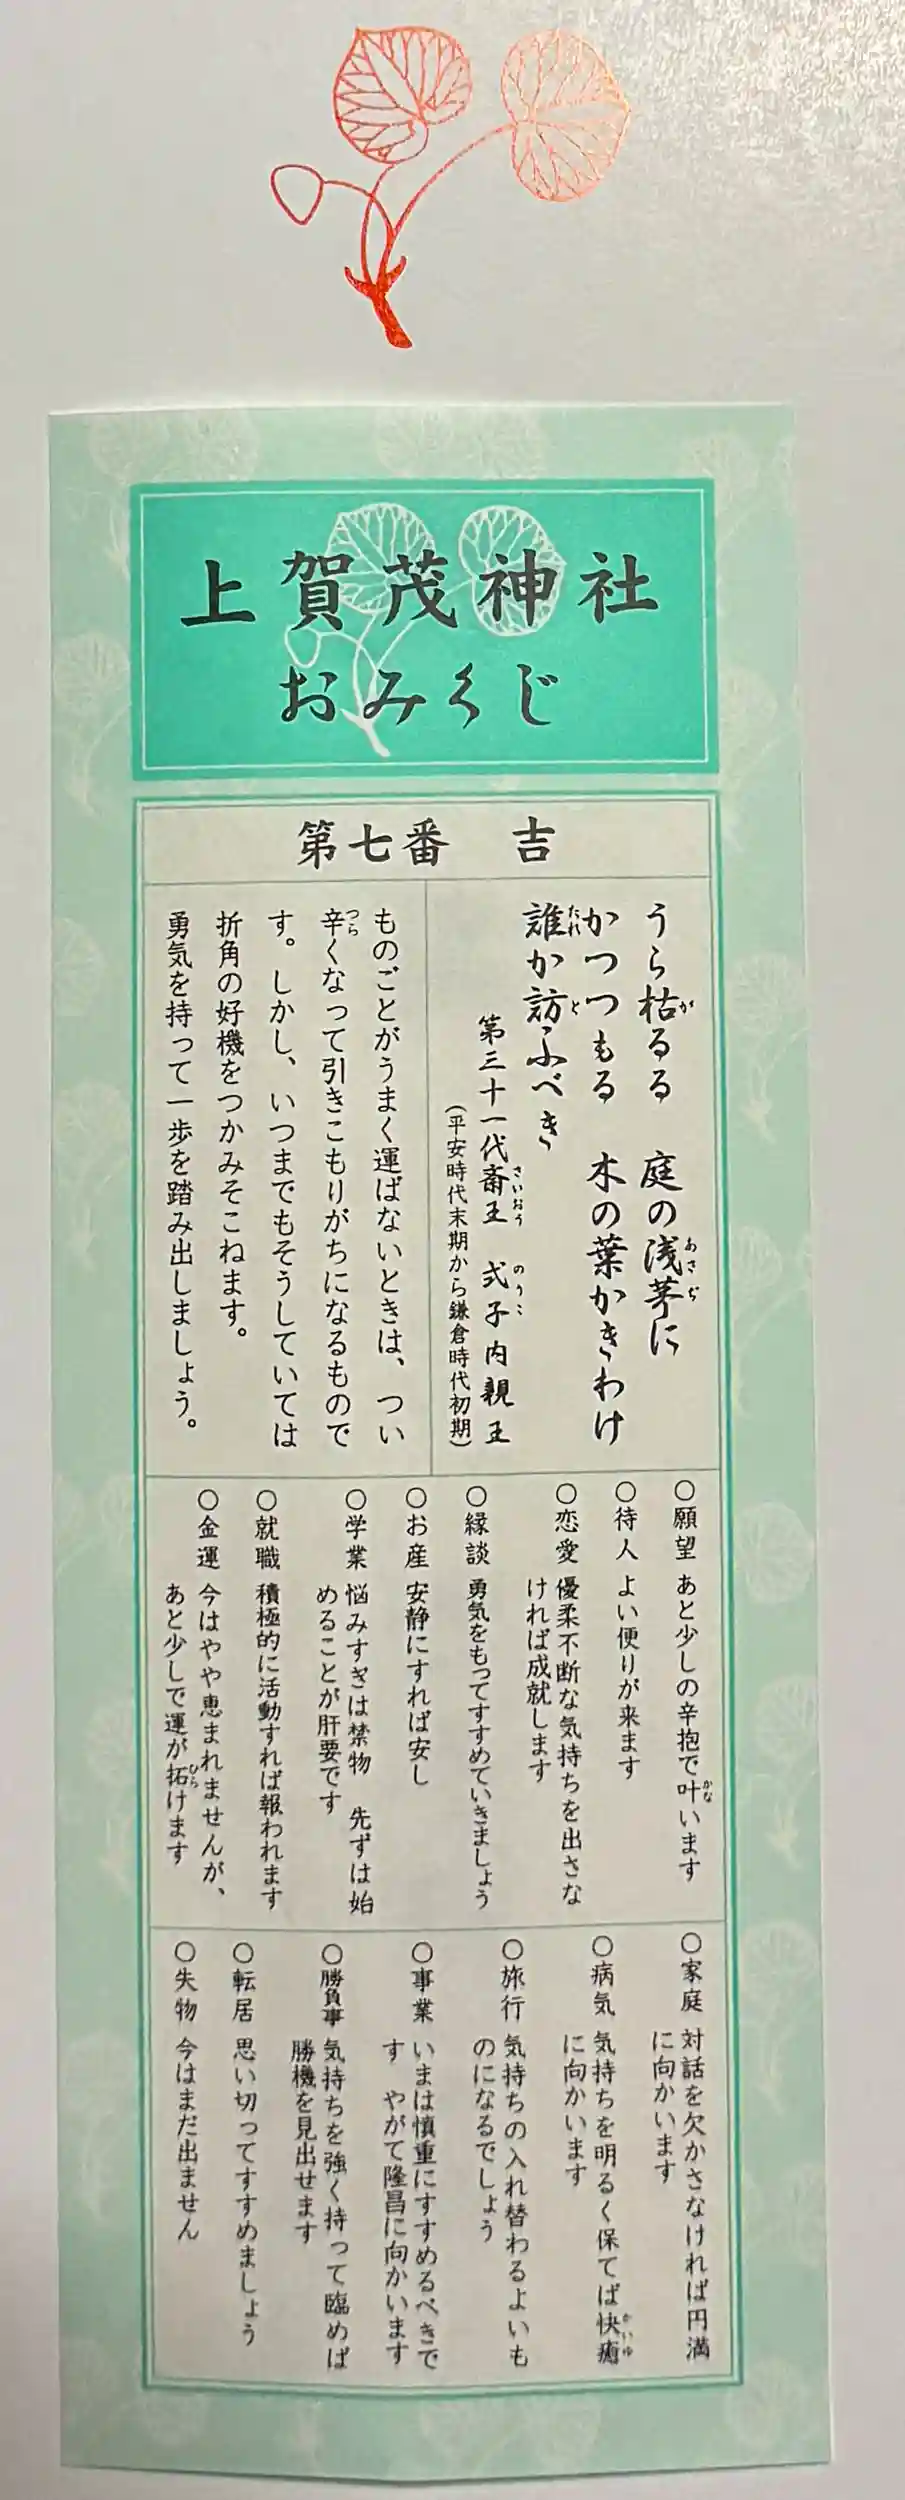 上賀茂神社
おみくじ
第七番　吉
うら枯るる　庭の浅茅に
かつつもる　木の葉かきわけ
誰か訪ふべき
第三十一代斎王　式子内親王
(平安時代末期から鎌倉時代初期)
ものごとがうまく運ばないときは、つい
辛くなって引きこもりがちになるもので
す。しかし、いつまでもそうしていては
折角の好機をつかみそこねます。
勇気を持って一歩を踏み出しましょう。
○願望　あと少しの辛抱で叶います
○待人　よい便りが来ます
○恋愛　優柔不断な気持ちを出さな
ければ成就します
○縁談　勇気をもってすすめていきましょう
○お産　安静にすれば安し
○学業　悩みすぎは禁物　先ずは始
めることが肝要です
○就職　積極的に活動すれば報われます
○金運　今はやや恵まれませんが、
あと少しで運が拓けます
○家庭　対話を欠かさなければ円満
に向かいます
○病気　気持ちを明るく保てば快癒
に向かいます
○旅行　気持ちの入れ替わるよいも
のになるでしょう
○事業　いまは慎重にすすめるべきで
す　やがて隆昌に向かいます
○勝負事　気持ちを強く持って臨めば
勝機を見出せます
○転居　思い切ってすすめましょう
○失物　今はまだ出ません